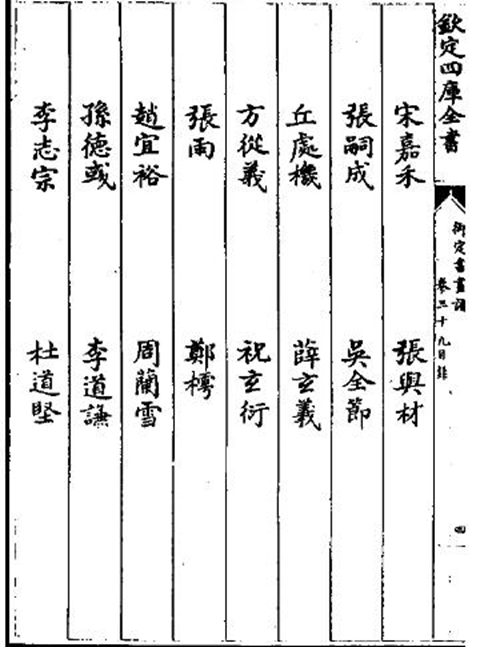 欽定四庫全書
御定書畫譜 卷三十九目錄 四
宋嘉禾 張與材
張嗣成 吳全節
丘處機 薛玄羲
方從義 祝玄衍
張雨 鄭樗
趙宜裕 周蘭雪
孫德彧 李道謙
李志宗 杜道堅